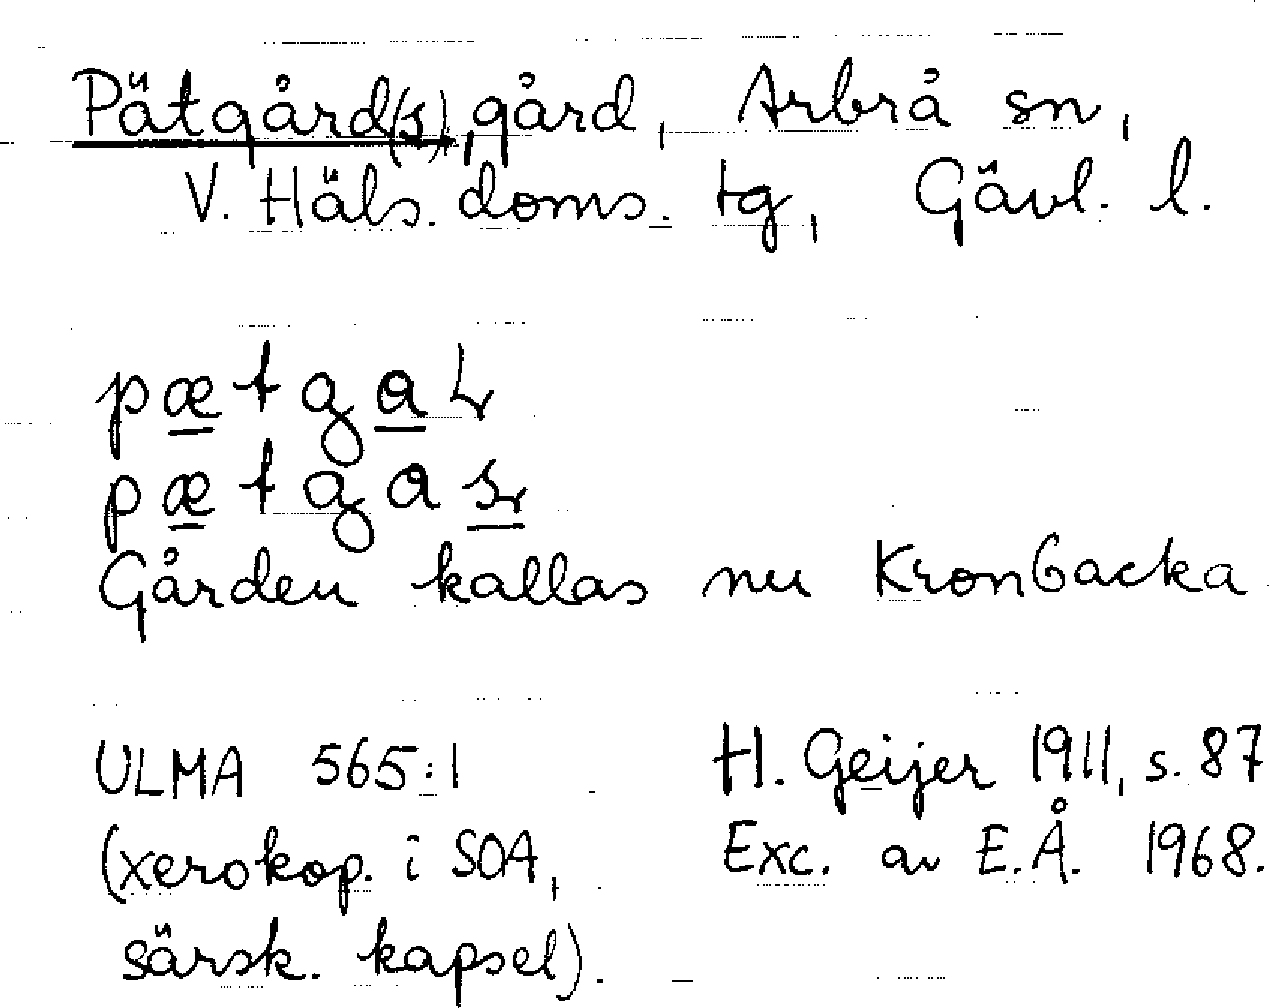 Pätgård(s), gård, Arbrå sn,
V. Häls. doms. tg, Gävl. l.
pætgaɭ
pætgaʂ
Gården kallas nu Kronbacka
ULMA 565:1 H. Geijer 1911, s. 87
(xerokop. i SOA, Exc. av E.Å. 1968.
särsk. kapsel).